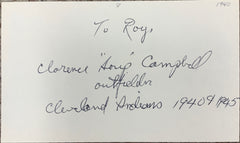 1940
To Roy,
Clarence "Soup" Campbell
outfielder
Cleveland Indians 1940 & 1945